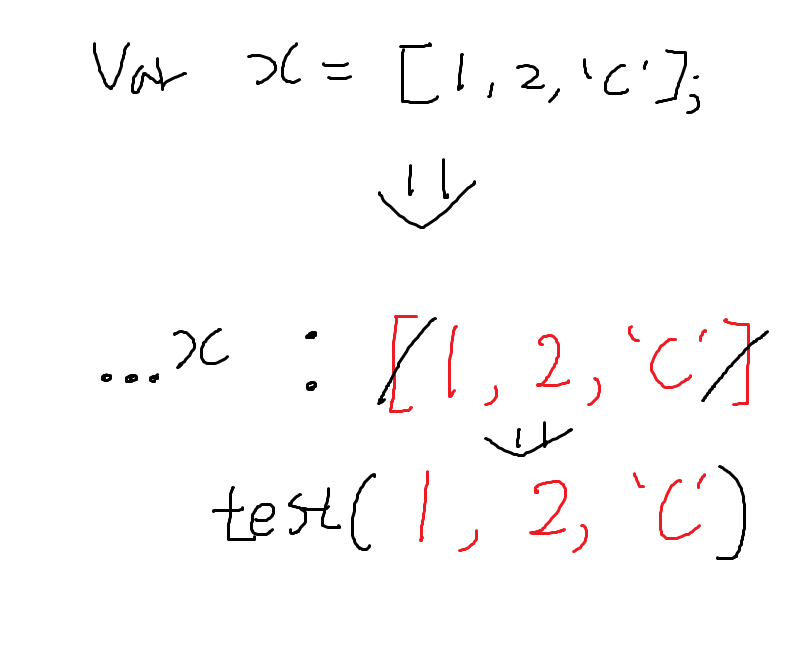 Var x = [1, 2, 'c'];
...x : [1, 2, 'c']
test(1, 2, 'c')